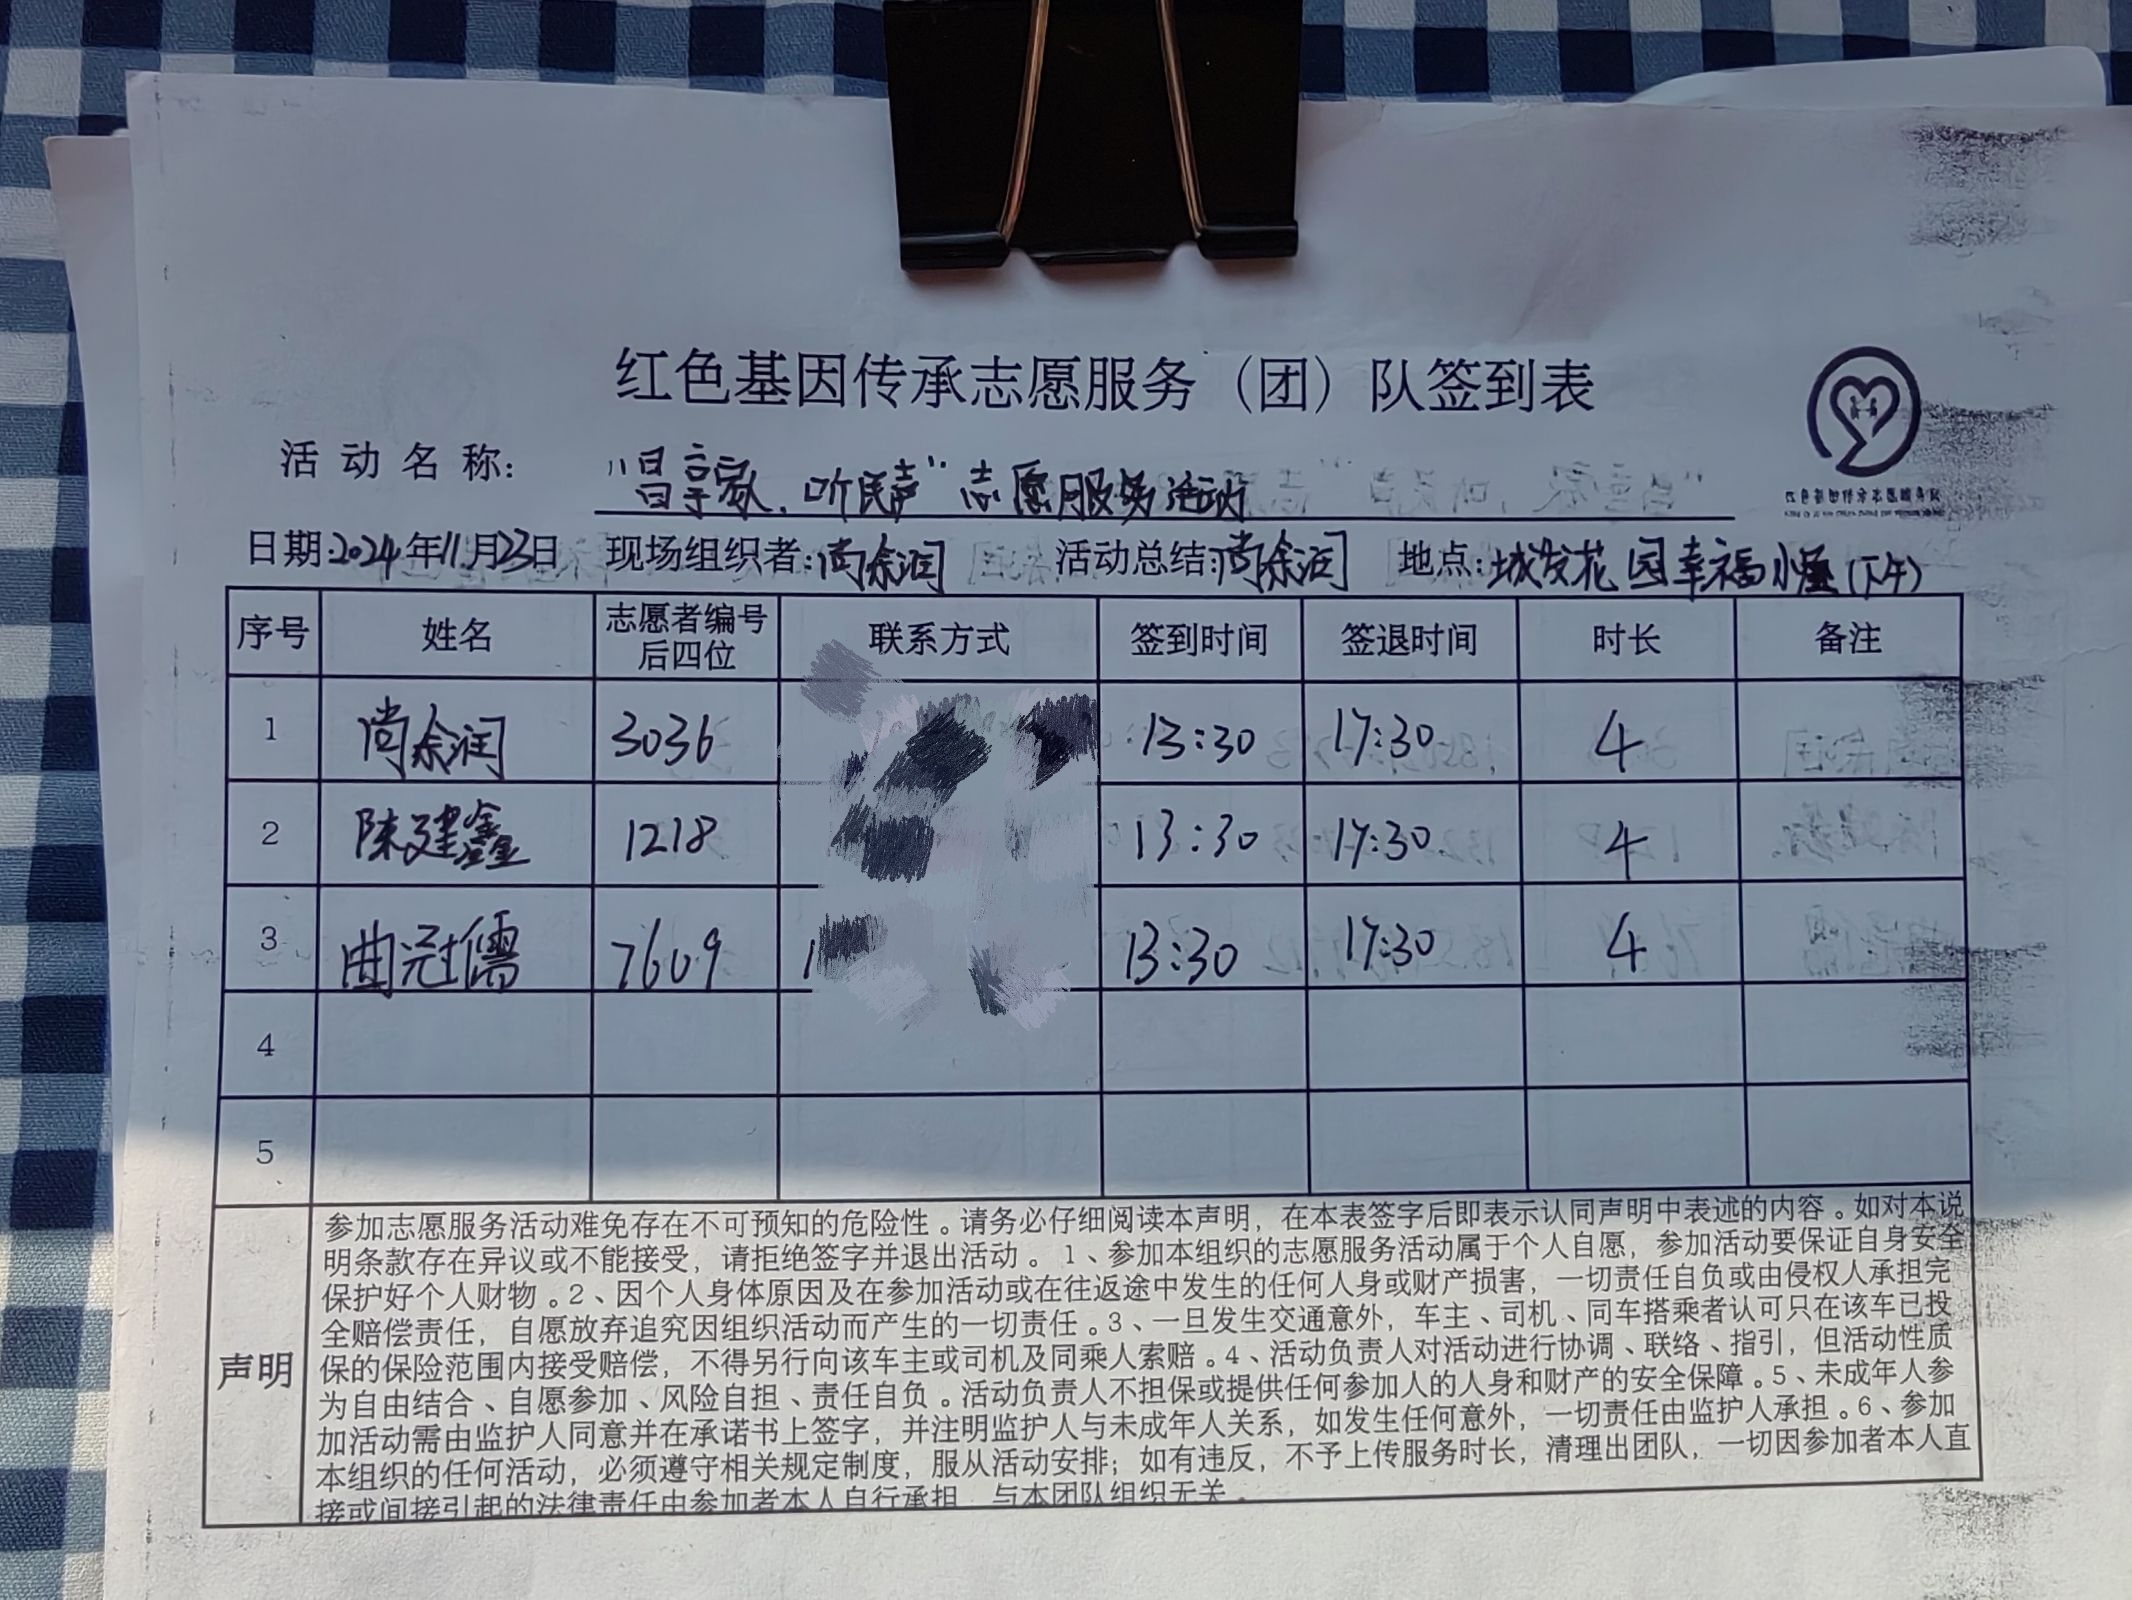 红色基因传承志愿服务（团）队签到表
活动名称： “昌享家，听民声”志愿服务活动
日期：2024年11月23日 现场组织者：尚余润 活动总结：尚余润 地点：城发花园幸福小屋（下午）
序号 姓名 志愿者编号后四位 联系方式 签到时间 签退时间 时长 备注
1 尚余润 3036 13:30 17:30 4
2 陈建鑫 1218 13:30 17:30 4
3 曲冠儒 7609 1 13:30 17:30 4
4
5
声明
参加志愿服务活动难免存在不可预知的危险性。请务必仔细阅读本声明，在本表签字后即表示认同声明中表述的内容。如对本说
明条款存在异议或不能接受，请拒绝签字并退出活动。1、参加本组织的志愿服务活动属于个人自愿，参加活动要保证自身安全
保护好个人财物。2、因个人身体原因及在参加活动或在往返途中发生的任何人身或财产损害，一切责任自负或由侵权人承担完
全赔偿责任，自愿放弃追究因组织活动而产生的一切责任。3、一旦发生交通意外，车主、司机、同车搭乘者认可只在该车已投
保的保险范围内接受赔偿，不得另行向该车主或司机及同乘人索赔。4、活动负责人对活动进行协调、联络、指引，但活动性质
为自由结合、自愿参加、风险自担、责任自负。活动负责人不担保或提供任何参加人的人身和财产的安全保障。5、未成年人参
加活动需由监护人同意并在承诺书上签字，并注明监护人与未成年人关系，如发生任何意外，一切责任由监护人承担。6、参加
本组织的任何活动，必须遵守相关规定制度，服从活动安排；如有违反，不予上传服务时长，清理出团队，一切因参加者本人直
接或间接引起的法律责任由参加者本人自行承担，与本团队组织无关。